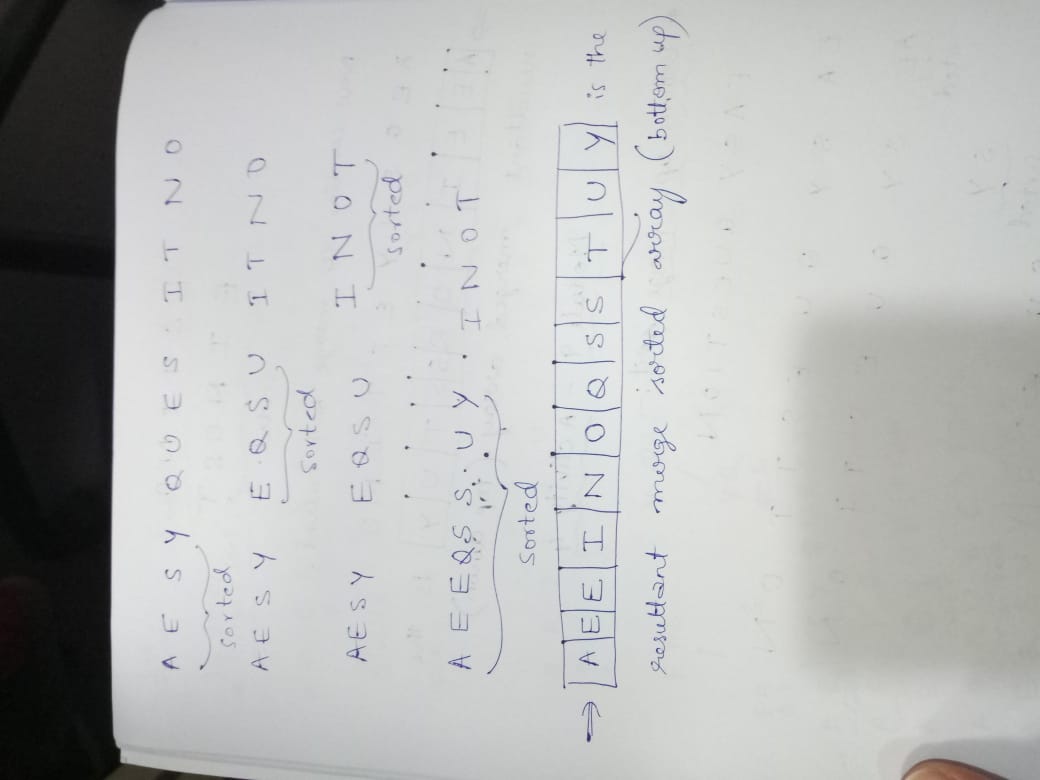 A E S Y Q U E S I T N O
sorted
A E S Y E Q S U I T N O
sorted
A E S Y E Q S U I N O T
sorted
A E E Q S S U Y I N O T
sorted
→ A E E I N O Q S S T U Y is the
resultant merge sorted array (bottom up)